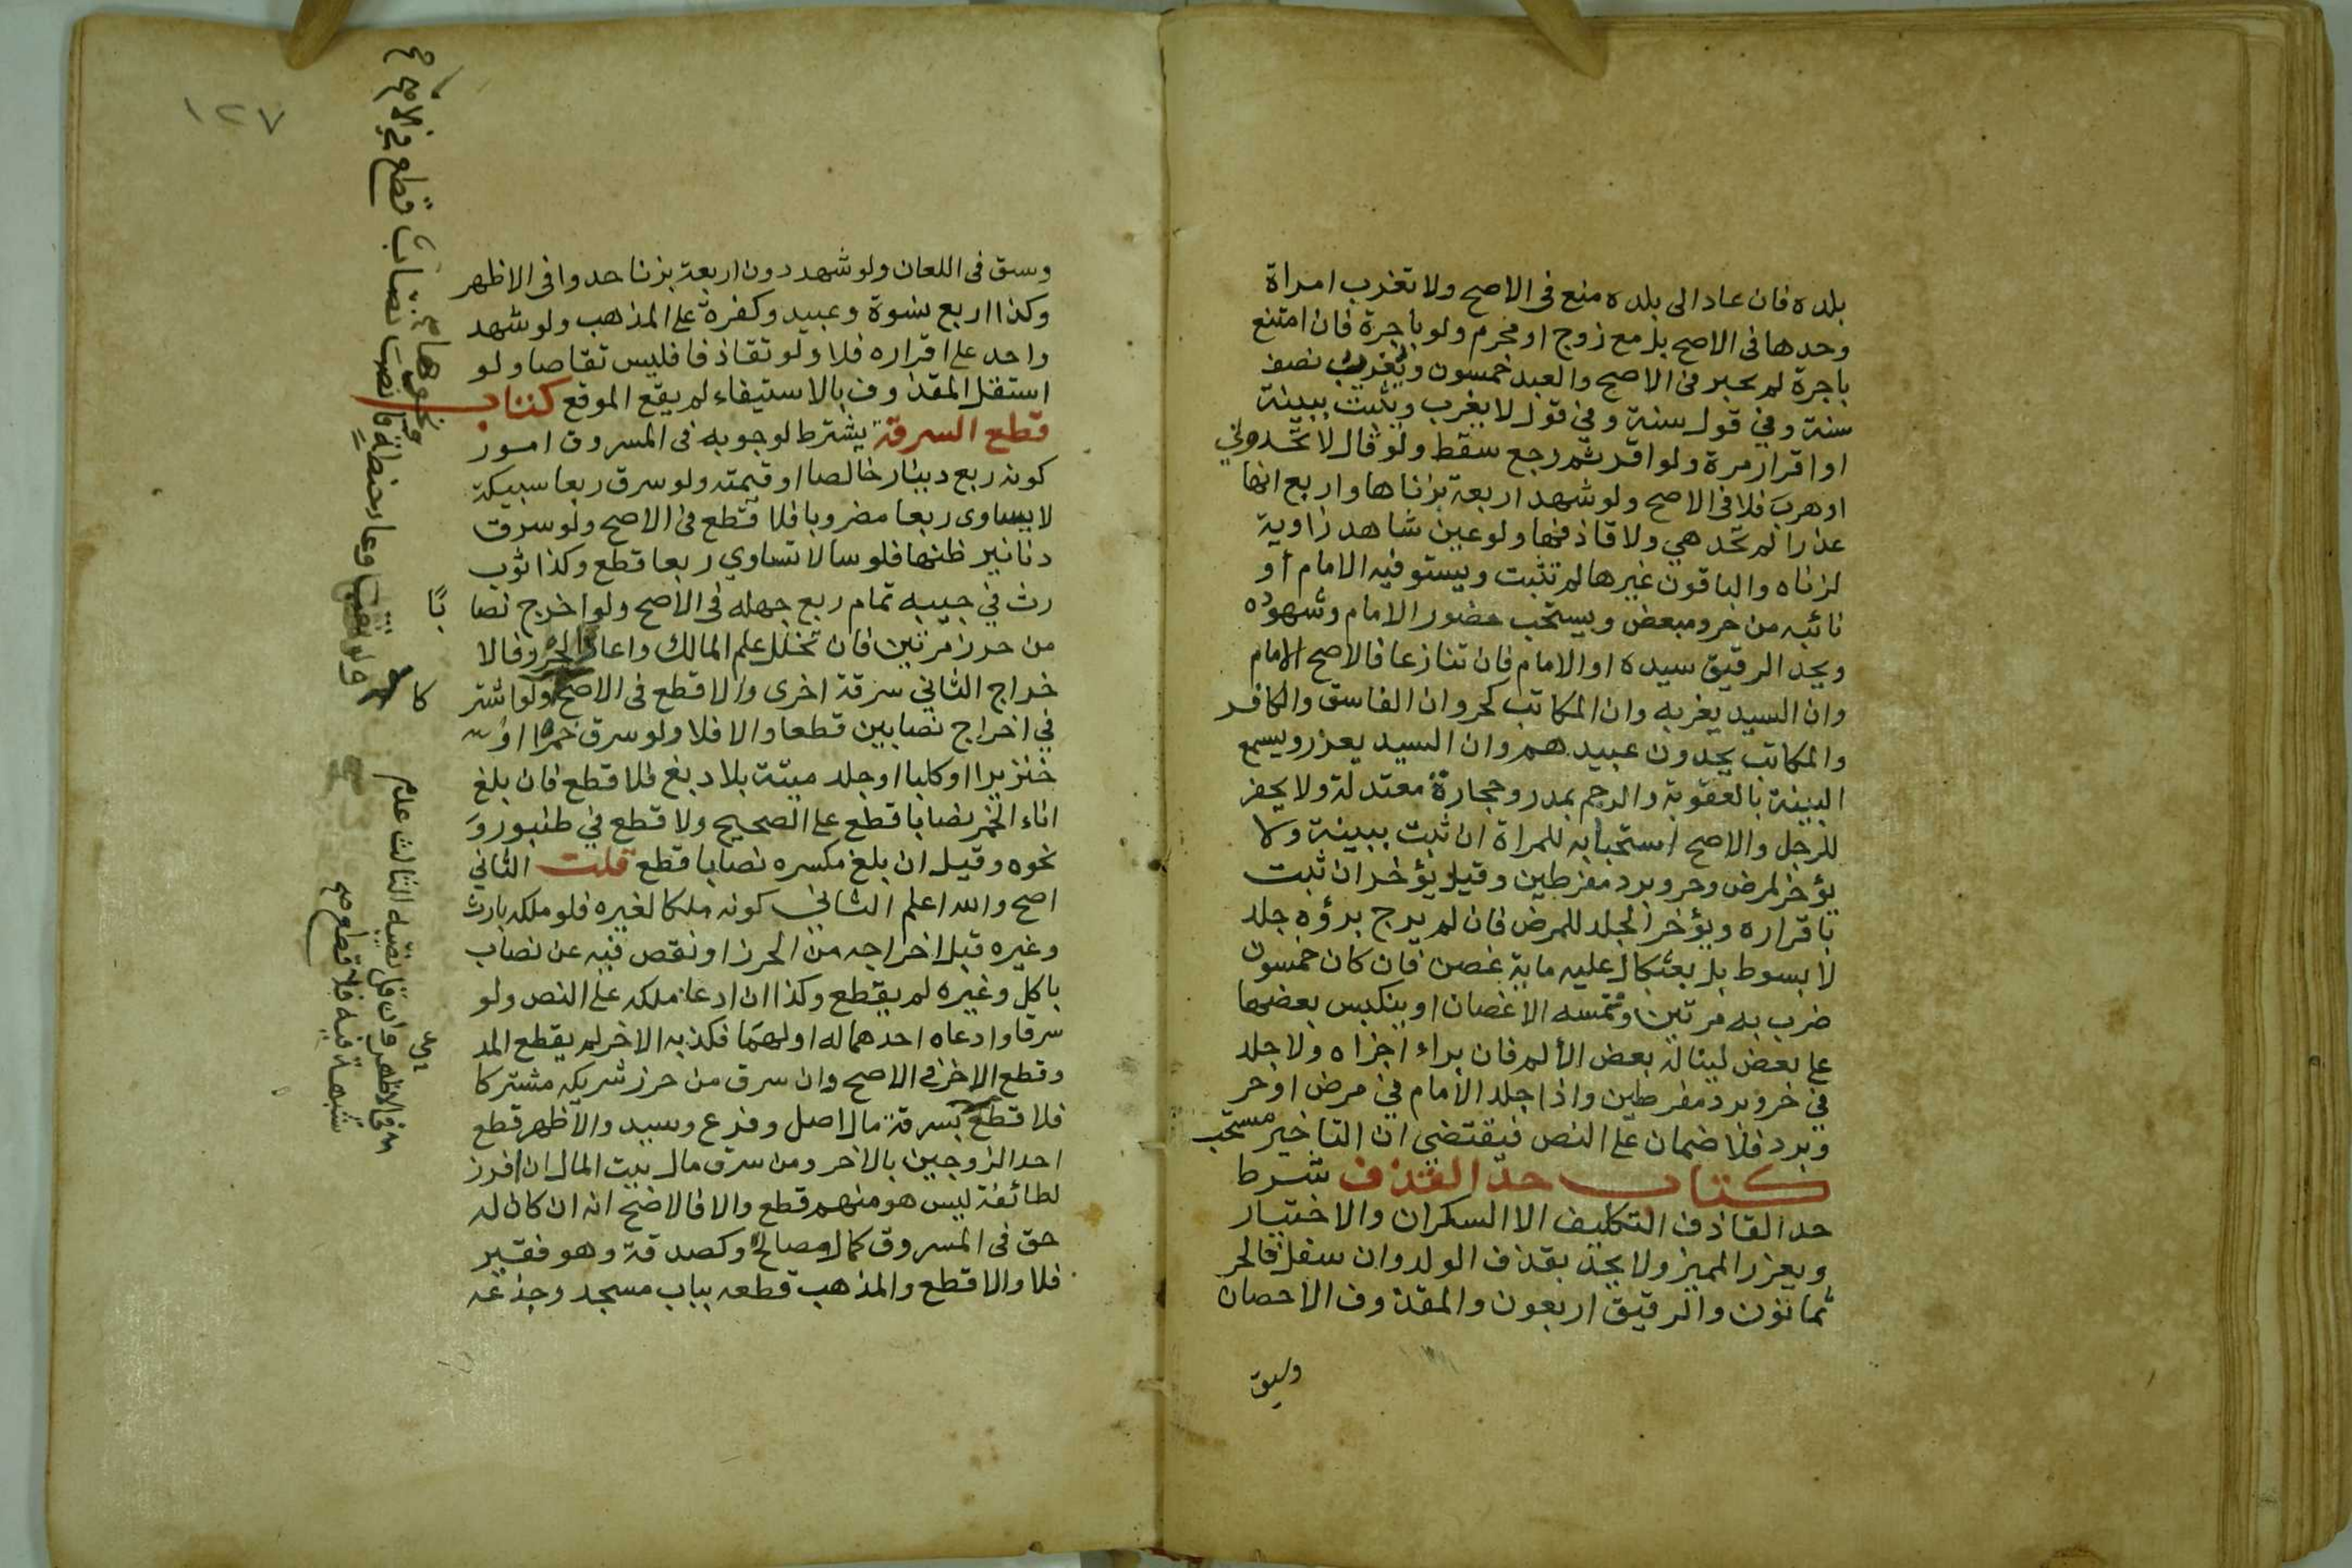 بلده فان عاد الى بلده منع فى الاصح ولا تغرب امراة
وحدها فى الاصح بل مع زوج او محرم ولو باجرة فان امتنع
باجرة لم يجبر فى الاصح والعبد خمسون ويغرب نصف
سنة وفي قول سنة وفي قول لا يغرب ويثبت ببينة
او اقرار مرة ولو اقر ثم رجع سقط ولو قال لا تحدوني
او هرب فلا فى الاصح ولو شهد اربعة بزناها واربع انها
عذرا لم تحد هي ولا قاذفها ولو عين شاهد زاوية
لزناه والباقون غيرها لم تثبت ويستوفيه الامام أو
نائبه من حر ومبعض ويستحب حضور الامام وشهوده
ويحد الرقيق سيده او الامام فان تنازعا فالاصح الامام
وان السيد يغربه وان المكاتب كحر وان الفاسق والكافر
والمكاتب يحدون عبيدهم وان السيد يعزر ويسمع
البينة بالعقوبة والرجم بمدر وحجارة معتدلة ولا يحفر
للرجل والاصح استحبابه للمراة ان ثبت ببينة ولا
يؤخر لمرض وحر وبرد مفرطين وقيل يؤخر ان ثبت
باقراره ويؤخر الجلد للمرض فان لم يرج برؤه جلد
لا بسوط بل بعثكال عليه ماية غصن فان كان خمسون
ضرب به مرتين وتمسه الاغصان او ينكبس بعضها
على بعض لينالة بعض الألم فان براء اجزاه ولا جلد
في حر وبرد مفرطين واذا جلد الامام في مرض او حر
وبرد فلا ضمان على النص فيقتضي ان التاخير مستحب
كتاب حد القذف شرط
حد القاذف التكليف الا السكران والاختيار
ويعزر المميز ولا يحد بقذف الولد وان سفل فالحر
ثمانون والرقيق اربعون والمقذوف الاحصان
وسبق
١٢٧
وسبق فى اللعان ولو شهد دون اربعة بزنا حدوا فى الاظهر
وكذا اربع نسوة وعبيد وكفرة على المذهب ولو شهد
واحد على اقراره فلا ولو تقاذفا فليس تقاصا ولو
استقل المقذوف بالاستيفاء لم يقع الموقع كتاب
قطع السرقة يشترط لوجوبه فى المسروق امور
كونه ربع دينار خالصا او قيمته ولو سرق ربعا سبيكة
لا يساوى ربعا مضروبا فلا قطع فى الاصح ولو سرق
دنانير ظنها فلوسا لا تساوي ربعا قطع وكذا ثوب
رث في جيبه تمام ربع جهله فى الاصح ولو اخرج نصا با
من حرز مرتين فان تخلل علم المالك واعادة الحرز فالا
خراج الثاني سرقة اخرى والا قطع فى الاصح ولو اشتر كا
في اخراج نصابين قطعا والا فلا ولو سرق خمرا او
خنزيرا او كلبا او جلد ميتة بلا دبغ فلا قطع فان بلغ
اناء الخمر نصابا قطع على الصحيح ولا قطع في طنبور و
نحوه وقيل ان بلغ مكسره نصابا قطع قلت الثاني
اصح والله اعلم الثاني كونه ملكا لغيره فلو ملكه بارث
وغيره قبل اخراجه من الحرز او نقص فيه عن نصاب
باكل وغيره لم يقطع وكذا ان ادعا ملكه على النص ولو
سرقا وادعاه احدهما له او لهما فكذبه الاخر لم يقطع المد عي
وقطع الاخر في الاصح وان سرق من حرز شريكه مشتركا
فلا قطع بسرقة مال اصل وفرع وسيد والاظهر قطع
احد الزوجين بالاخر ومن سرق مال بيت المال ان افرز
لطائفة ليس هو منهم قطع والا فالاصح انه ان كان له
حق فى المسروق كمال مصالح وكصدقة وهو فقير
فلا والا قطع والمذهب قطعه بباب مسجد وجذعه
ولو نقب وعاء حنطة فانصب نصاب قطع في الاصح صح
فى الاظهر وان قل نصيبه الثالث عدم
شبهة فيه فلا قطع صح